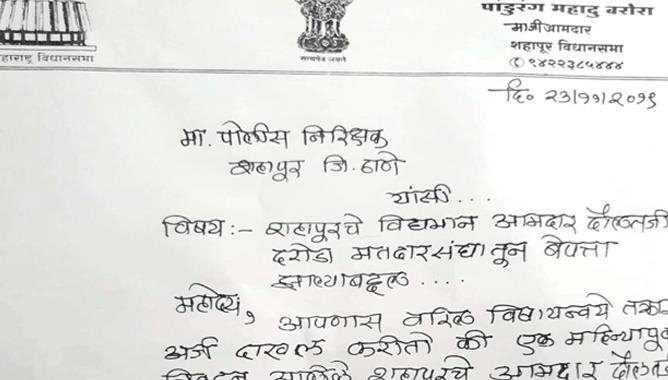 पांडुरंग महादु बरोरा
माजी आमदार
शहापूर विधानसभा
✆ ९४२२३८५४४४
हाराष्ट्र विधानसभा
सत्यमेव जयते
दि० २३/११/२०१९
मा. पोलीस निरिक्षक
शहापूर जि. ठाणे
यांसी...
विषय:- शहापूरचे विद्यमान आमदार दौलतजी
दरोडा मतदारसंघातून बेपत्ता
झाल्याबद्दल....
महोदय,
आपणास वरिल विषयान्वये तक्रार
अर्ज दाखल करीतो की एक महिन्यापूर्व
आलेले शहापूरचे आमदार दौलत